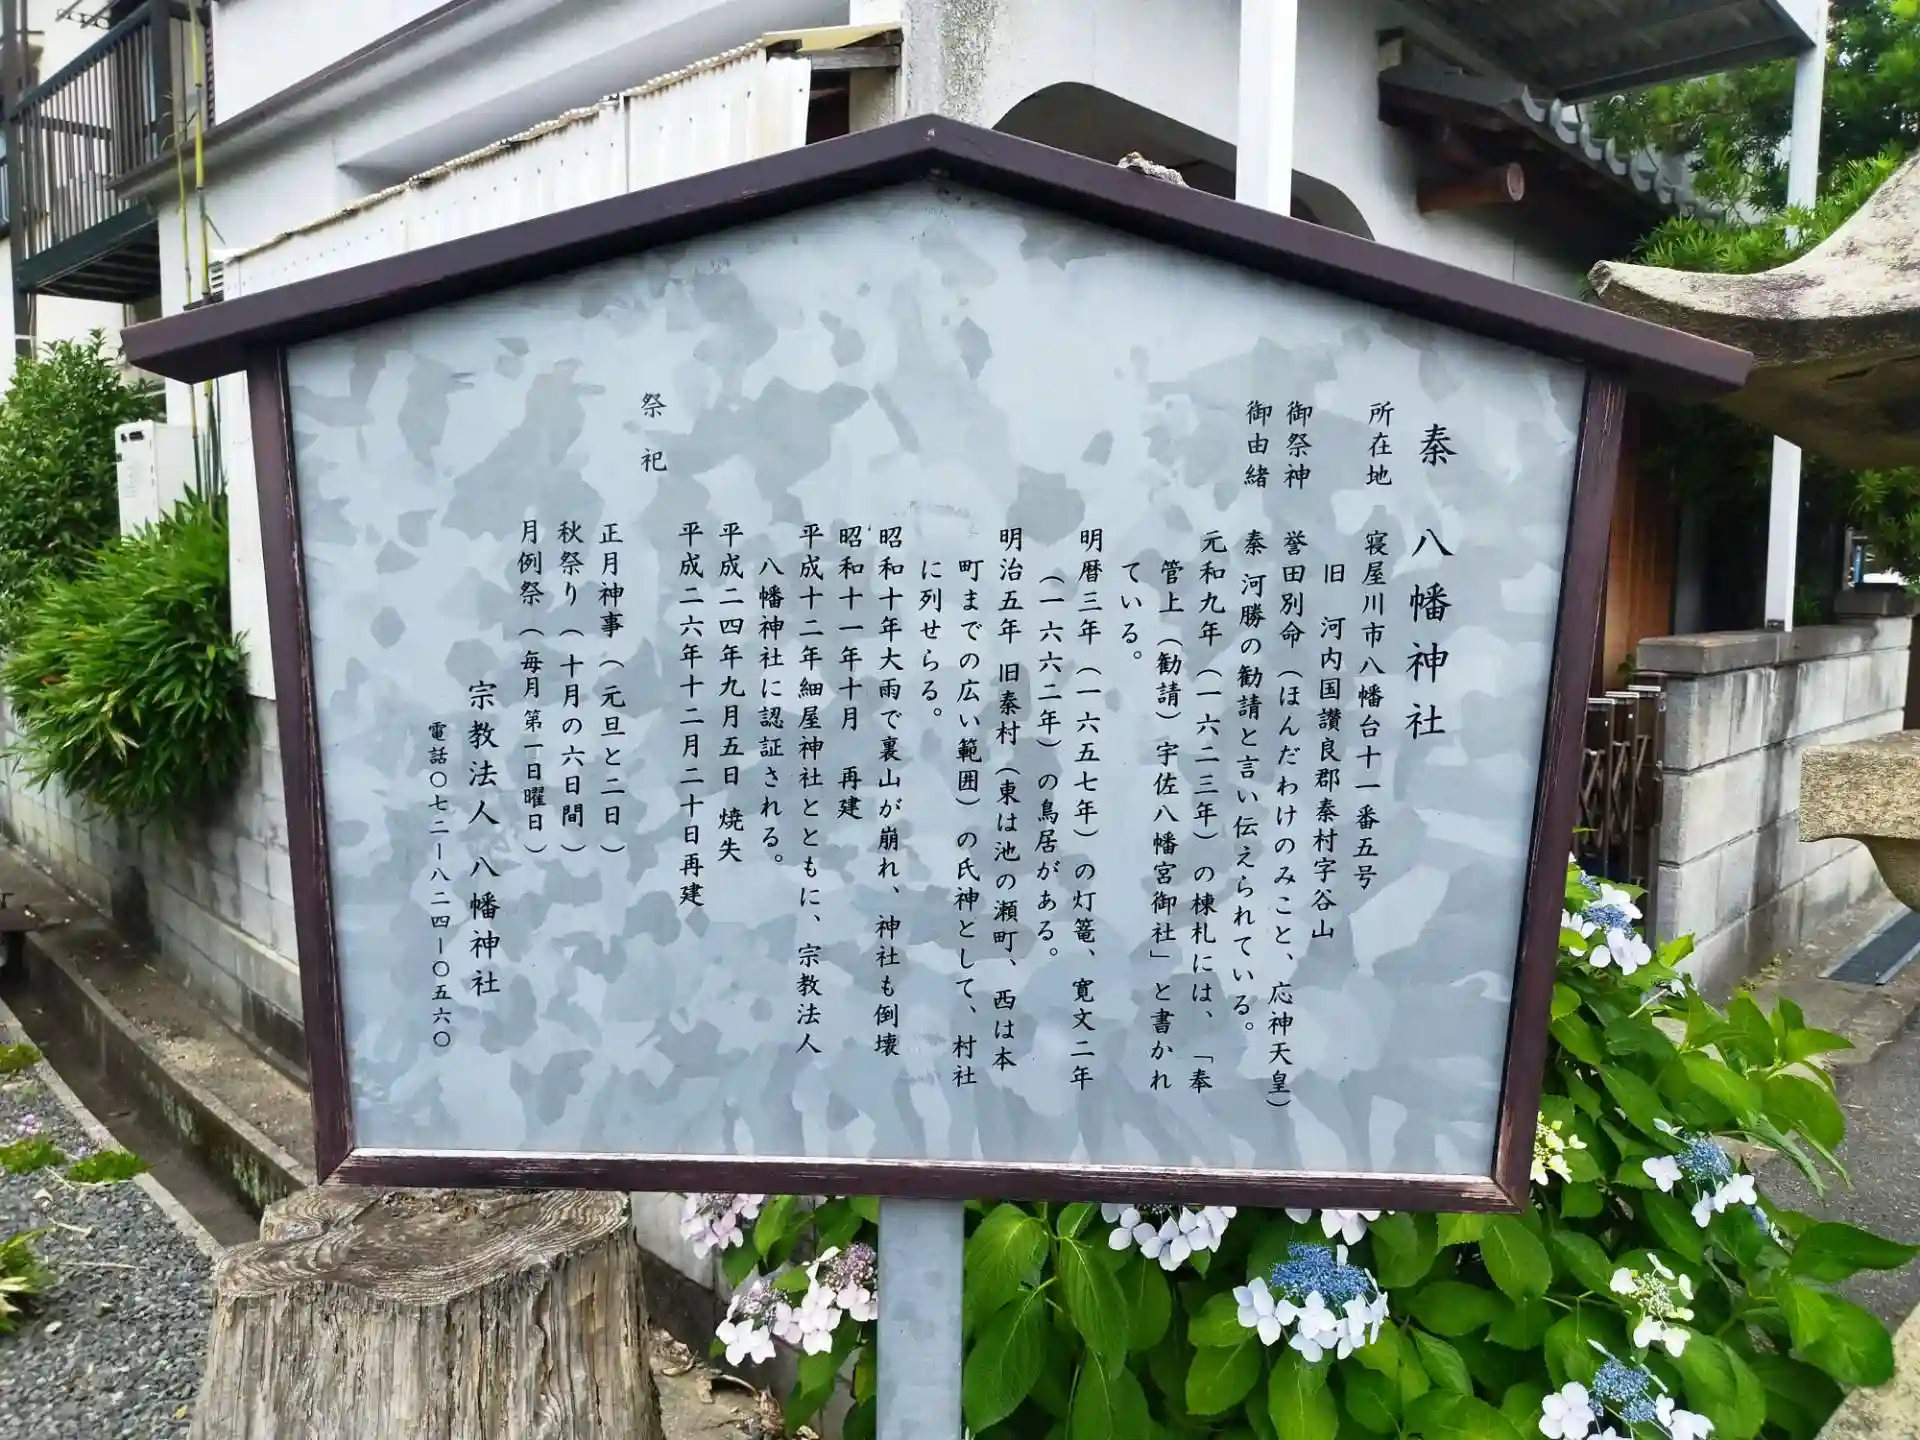 秦 八幡神社
所在地 寝屋川市八幡台十一番五号
旧 河内国讃良郡秦村字谷山
御祭神 誉田別命（ほんだわけのみこと、応神天皇）
御由緒 秦 河勝の勧請と言い伝えられている。
元和九年（一六二三年）の棟札には、「奉
管上（勧請）宇佐八幡宮御社」と書かれ
ている。
明暦三年（一六五七年）の灯篭、寛文二年
（一六六二年）の鳥居がある。
明治五年 旧秦村（東は池の瀬町、西は本
町までの広い範囲）の氏神として、村社
に列せらる。
昭和十年大雨で裏山が崩れ、神社も倒壊
昭和十一年十月 再建
平成十二年細屋神社とともに、宗教法人
八幡神社に認証される。
平成二四年九月五日 焼失
平成二六年十二月二十日再建
祭祀
正月神事（元旦と二日）
秋祭り（十月の六日間）
月例祭（毎月第一日曜日）
宗教法人 八幡神社
電話〇七二ー八二四ー〇五六〇